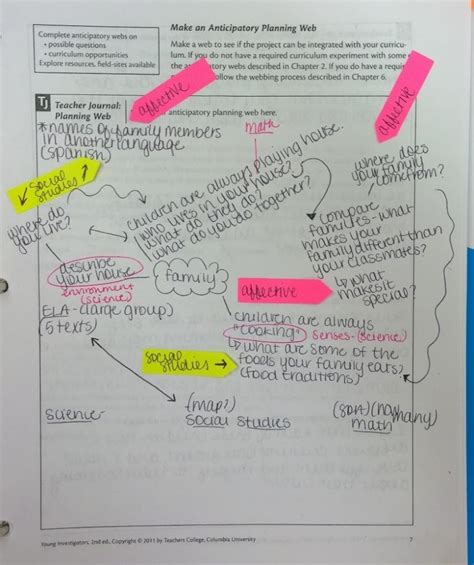 Make an Anticipatory Planning Web
Complete anticipatory webs on
• possible questions
• curriculum opportunities
Explore resources, field-sites available
Make a web to see if the project can be integrated with your curricu-
lum. If you do not have a required curriculum experiment with some
the webs described in Chapter 2. If you do have a
follow the webbing process described in Chapter 6.
TJ
Teacher Journal:
Planning Web
anticipatory planning web here.
affective
affective
*names of family members
in another language
(Spanish)
math
social
studies ?
where do
you live?
children are always playing house.
who lives in your house?
what do they do?
what do you do together?
where does
your family
come from?
compare
families - what
makes your
family different than
your classmates?
what
makes it
special?
describe
your house
environment
(science)
family
affective
ELA - (large group)
(5 texts)
children are always
"cooking"
senses - (science)
what are some of the
foods your family eats?
(food traditions)
social
studies →
science
(map?)
social studies
(how many)
math
Young Investigators, 2nd ed., Copyright © 2011 by Teachers College, Columbia University
7